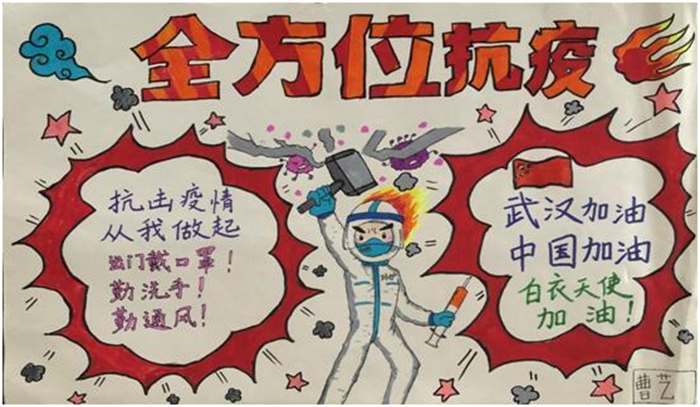 全方位抗疫
抗击疫情
从我做起
出门戴口罩！
勤洗手！
勤通风！
武汉加油
中国加油
白衣天使
加油！
曹艺